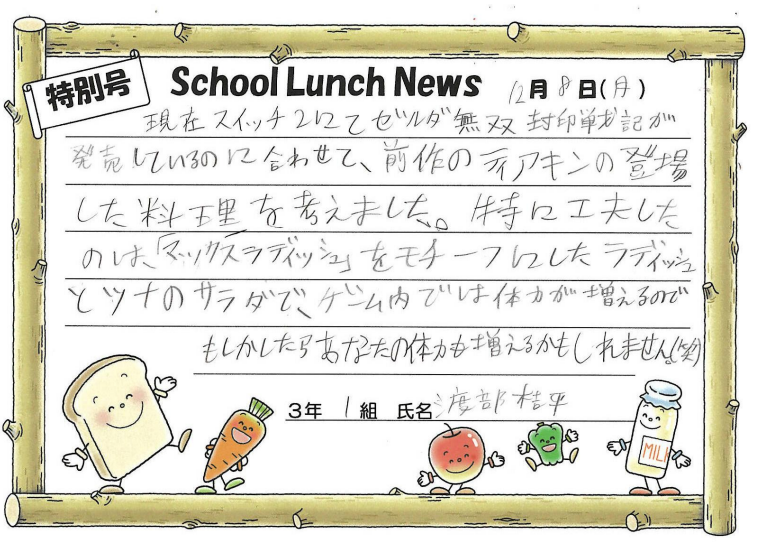 特別号
School Lunch News 12月8日(月)
現在スイッチ2にてゼルダ無双 封印戦記が
発売しているのに合わせて、前作のティアキンの登場
した料理を考えました。特に工夫した
のは、「マックスラディッシュ」をモチーフにしたラディッシュ
とツナのサラダで、ゲーム内では体力が増えるので
もしかしたらあなたの体力も増えるかもしれません(笑)
3年 1組 氏名 渡部桔平
MILK